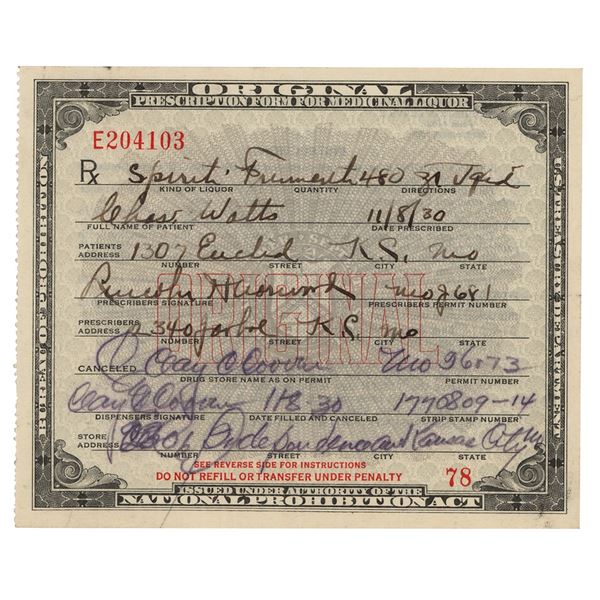 ORIGINAL
PRESCRIPTION FORM FOR MEDICINAL LIQUOR
E204103
Rx Spiriti Frumenti 480
KIND OF LIQUOR QUANTITY DIRECTIONS
Chase Watts 11/8/30
FULL NAME OF PATIENT DATE PRESCRIBED
PATIENTS ADDRESS 1307 Euclid K.C. Mo
NUMBER STREET CITY STATE
PRESCRIBERS SIGNATURE PRESCRIBERS PERMIT NUMBER
PRESCRIBERS ADDRESS K.C. Mo
NUMBER STREET CITY STATE
ORIGINAL
CANCELED Clay
DRUG STORE NAME AS ON PERMIT PERMIT NUMBER
Clay 11 8 30 1770809-14
DISPENSERS SIGNATURE DATE FILLED AND CANCELED STRIP STAMP NUMBER
STORE ADDRESS Independence Kansas City Mo
NUMBER STREET CITY STATE
SEE REVERSE SIDE FOR INSTRUCTIONS
DO NOT REFILL OR TRANSFER UNDER PENALTY 78
ISSUED UNDER AUTHORITY OF THE
NATIONAL PROHIBITION ACT
BUREAU OF PROHIBITION